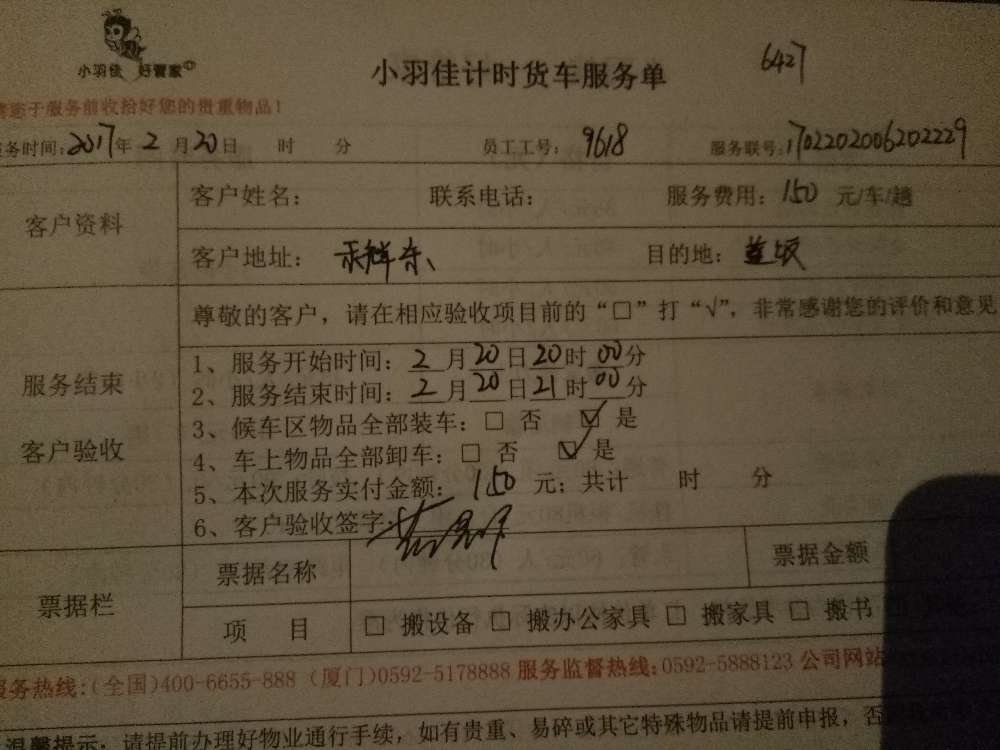 小羽佳 好管家
小羽佳计时货车服务单
6427
您于服务前收拾好您的贵重物品！
务时间：2017年 2 月20日 时 分 员工工号：9618 服务联号：1702202006202229
客户资料
客户姓名： 联系电话： 服务费用：150 元/车/趟
客户地址： 目的地：
尊敬的客户，请在相应验收项目前的“□”打“√”，非常感谢您的评价和意见
服务结束
客户验收
1、服务开始时间：2月20日20时00分
2、服务结束时间：2月20日21时00分
3、候车区物品全部装车：□ 否 ☑ 是
4、车上物品全部卸车：□ 否 ☑ 是
5、本次服务实付金额：150 元；共计 时 分
6、客户验收签字：
票据栏
票据名称 票据金额
项 目 □ 搬设备 □ 搬办公家具 □ 搬家具 □ 搬书
服务热线：(全国)400-6655-888 (厦门)0592-5178888 服务监督热线：0592-5888123 公司网站
温馨提示：请提前办理好物业通行手续，如有贵重、易碎或其它特殊物品请提前申报，否